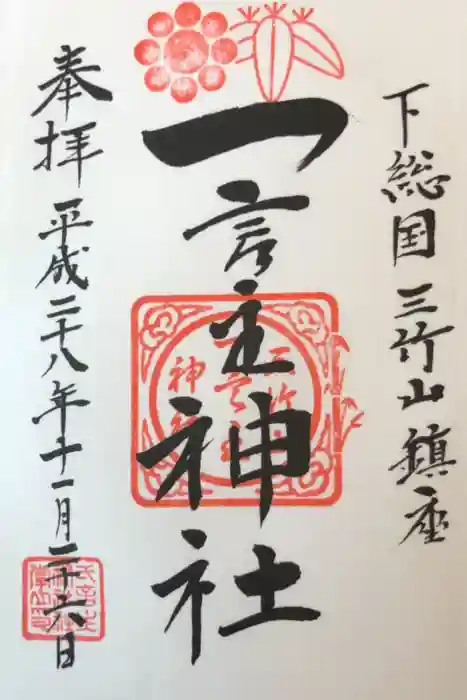 下総国三竹山鎮座
一言主神社
奉拝 平成二十八年十一月二十六日